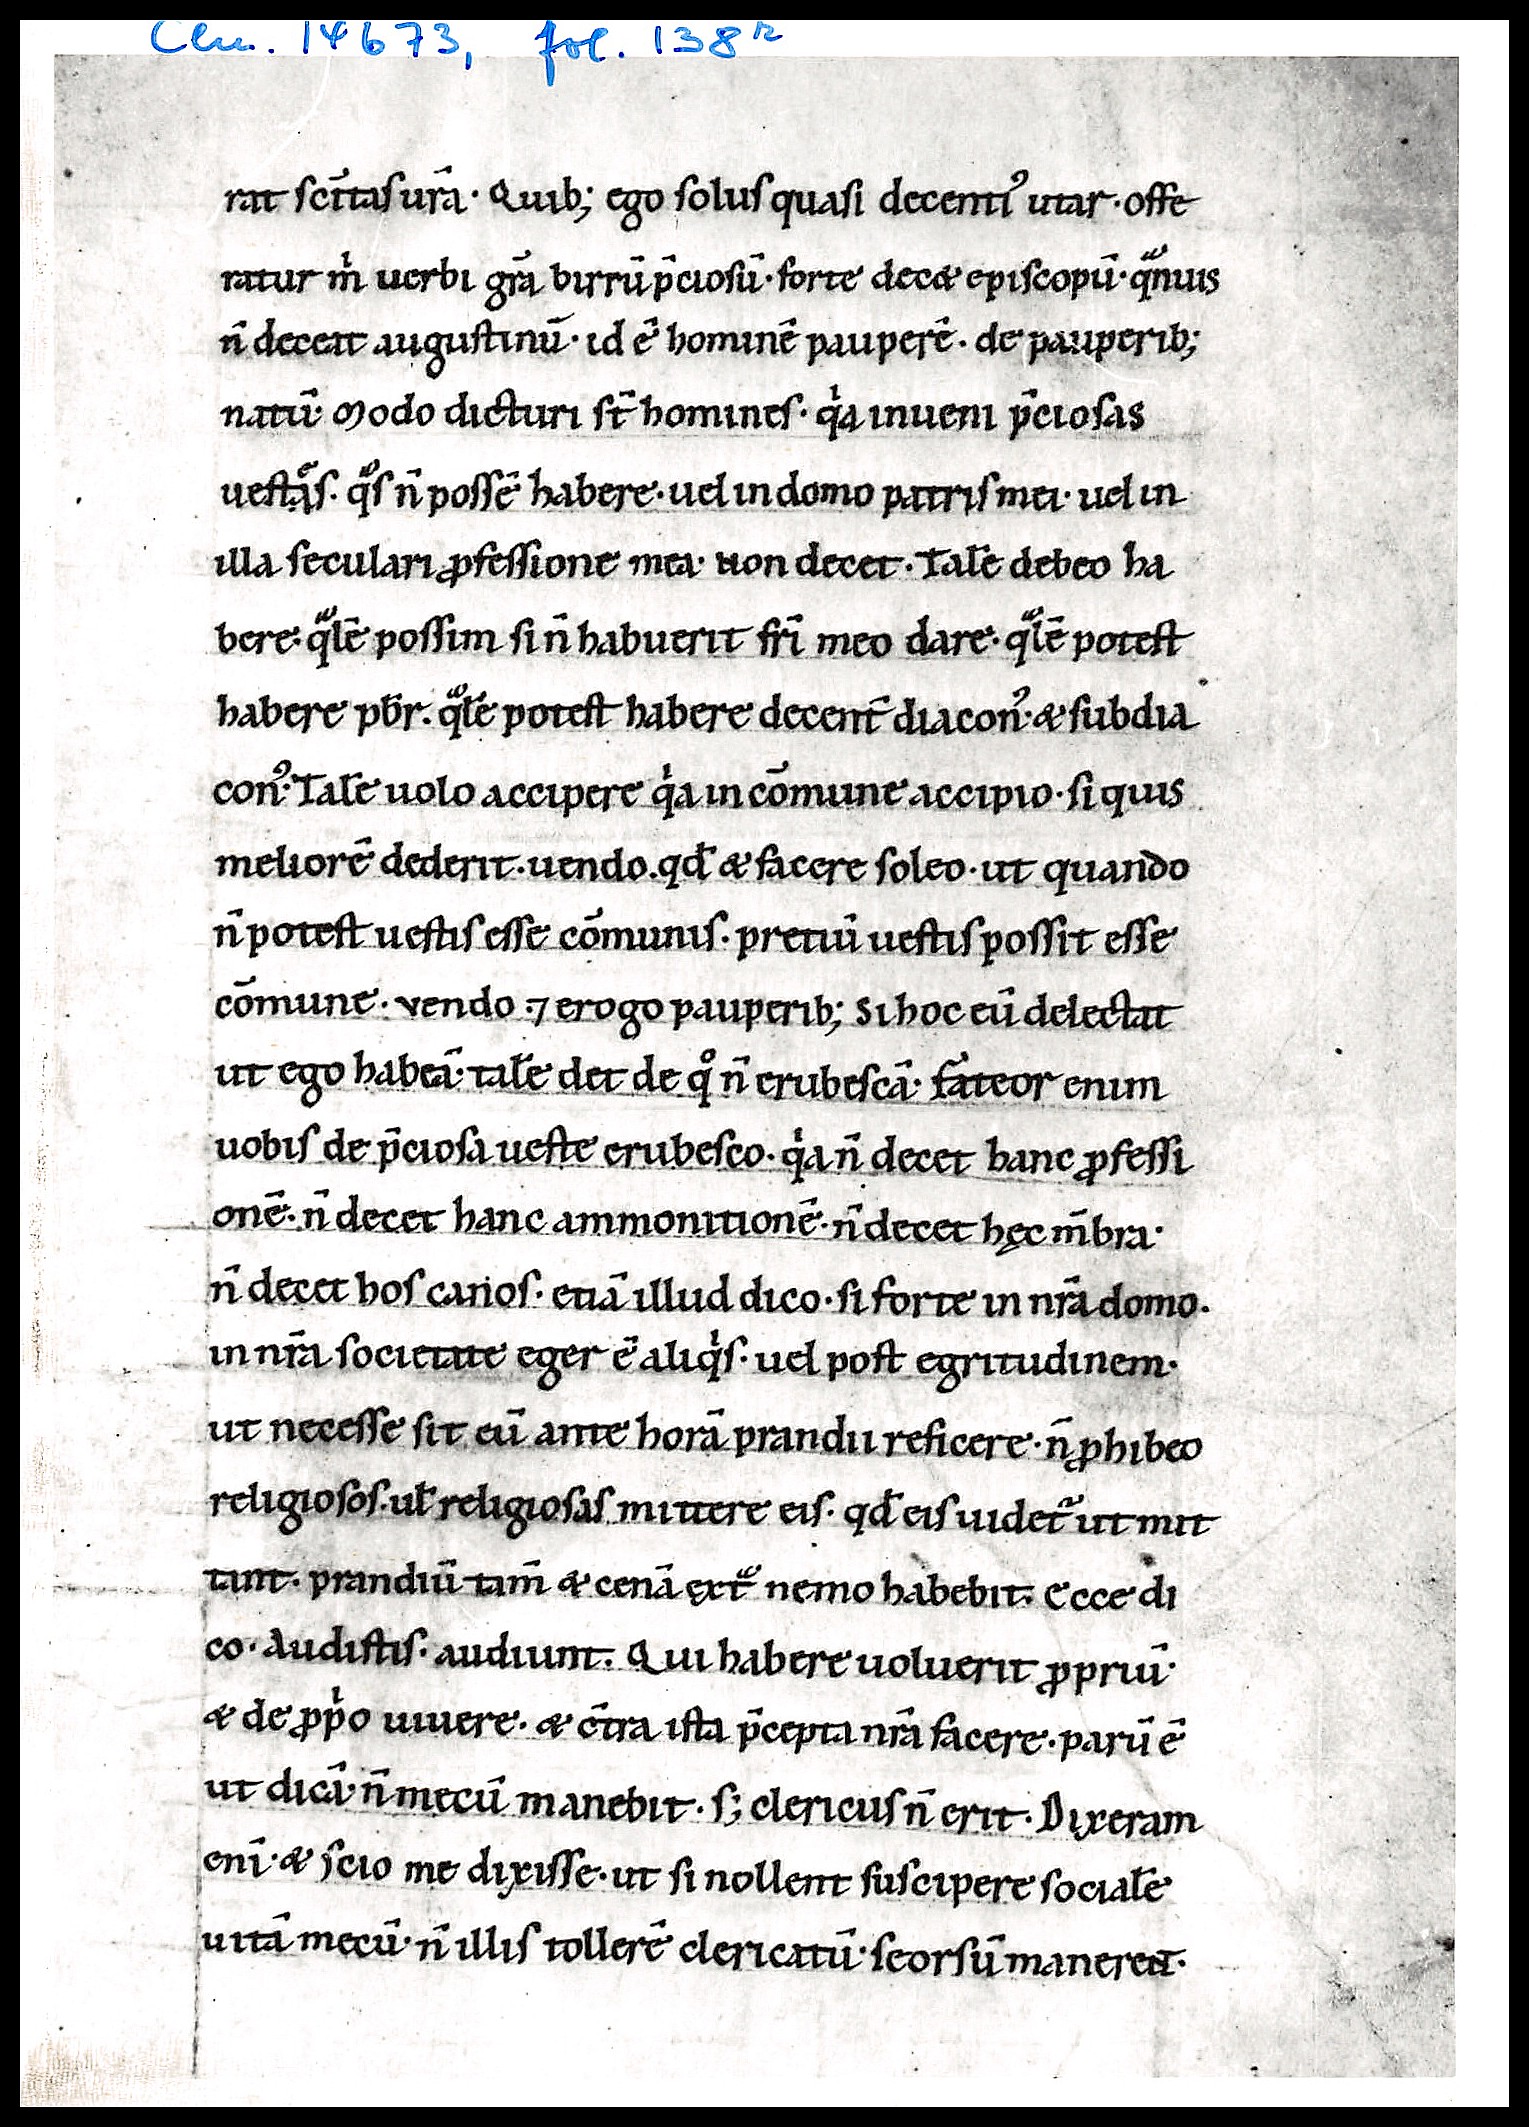 Clm. 14673, fol. 138r
rat sc̄itas ur̄a· Quib; ego solus quasi decenti᾽ utar· offe
ratur m̍ uerbi gr̄a birrū p̄ciosū· forte decet episcopū· qᵃnuis
n̄ deceat augustinū· id ē hominē pauperē· de pauperib;
natū· Modo dicturi st̄ homines· qⁱa inueni p̄ciosas
uestes· qᵃs n̄ possē habere· uel in domo patris mei· uel in
illa seculari ꝓfessione mea· non decet· Talē debeo ha
bere· qᵃlē possim si n̄ habuerit fr̄i meo dare· qᵃlē potest
habere pb̄r. qᵃlē potest habere decent̄ diacon᾽· & subdia
con᾽· Talē uolo accipere qⁱa in cōmune accipio· si quis
meliorē dederit· uendo. qd̄ & facere soleo· ut quando
n̄ potest uestis esse cōmunis· pretiū uestis possit esse
cōmune· vendo ·⁊ erogo pauperib; Si hoc eū delectat
ut ego habeā· talē det de qͦ n̄ erubescā· fateor enim
uobis de p̄ciosa ueste erubesco· qⁱa n̄ decet hanc ꝓfessi
onē· n̄ decet hanc ammonitionē· n̄ decet hęc m̄bra·
n̄ decet hos canos· etiā illud dico· si forte in nr̄a domo.
in nr̄a societate eger ē aliqⁱs· uel post egritudinem·
ut necesse sit eū ante horā prandii reficere· n̄ ꝓhibeo
religiosos· ul̄ religiosas mittere eis· qd̄ eis uidet᷑ ut mit
tant· prandiū tam̄ & cenā ext̄ᵃ nemo habebit· Ecce di
co· Audistis· audiunt· Qui habere uoluerit ꝓpriū·
& de ꝓpⁱo uiuere· & c̄tra ista p̄cepta nr̄a facere· parū ē
ut dicā· n̄ mecū manebit· s; clericus n̄ erit· Dixeram
enī· & scio me dixisse· ut si nollent suscipere socialē
uitā mecū· n̄ illis tollerē clericatū· seorsū manerent·